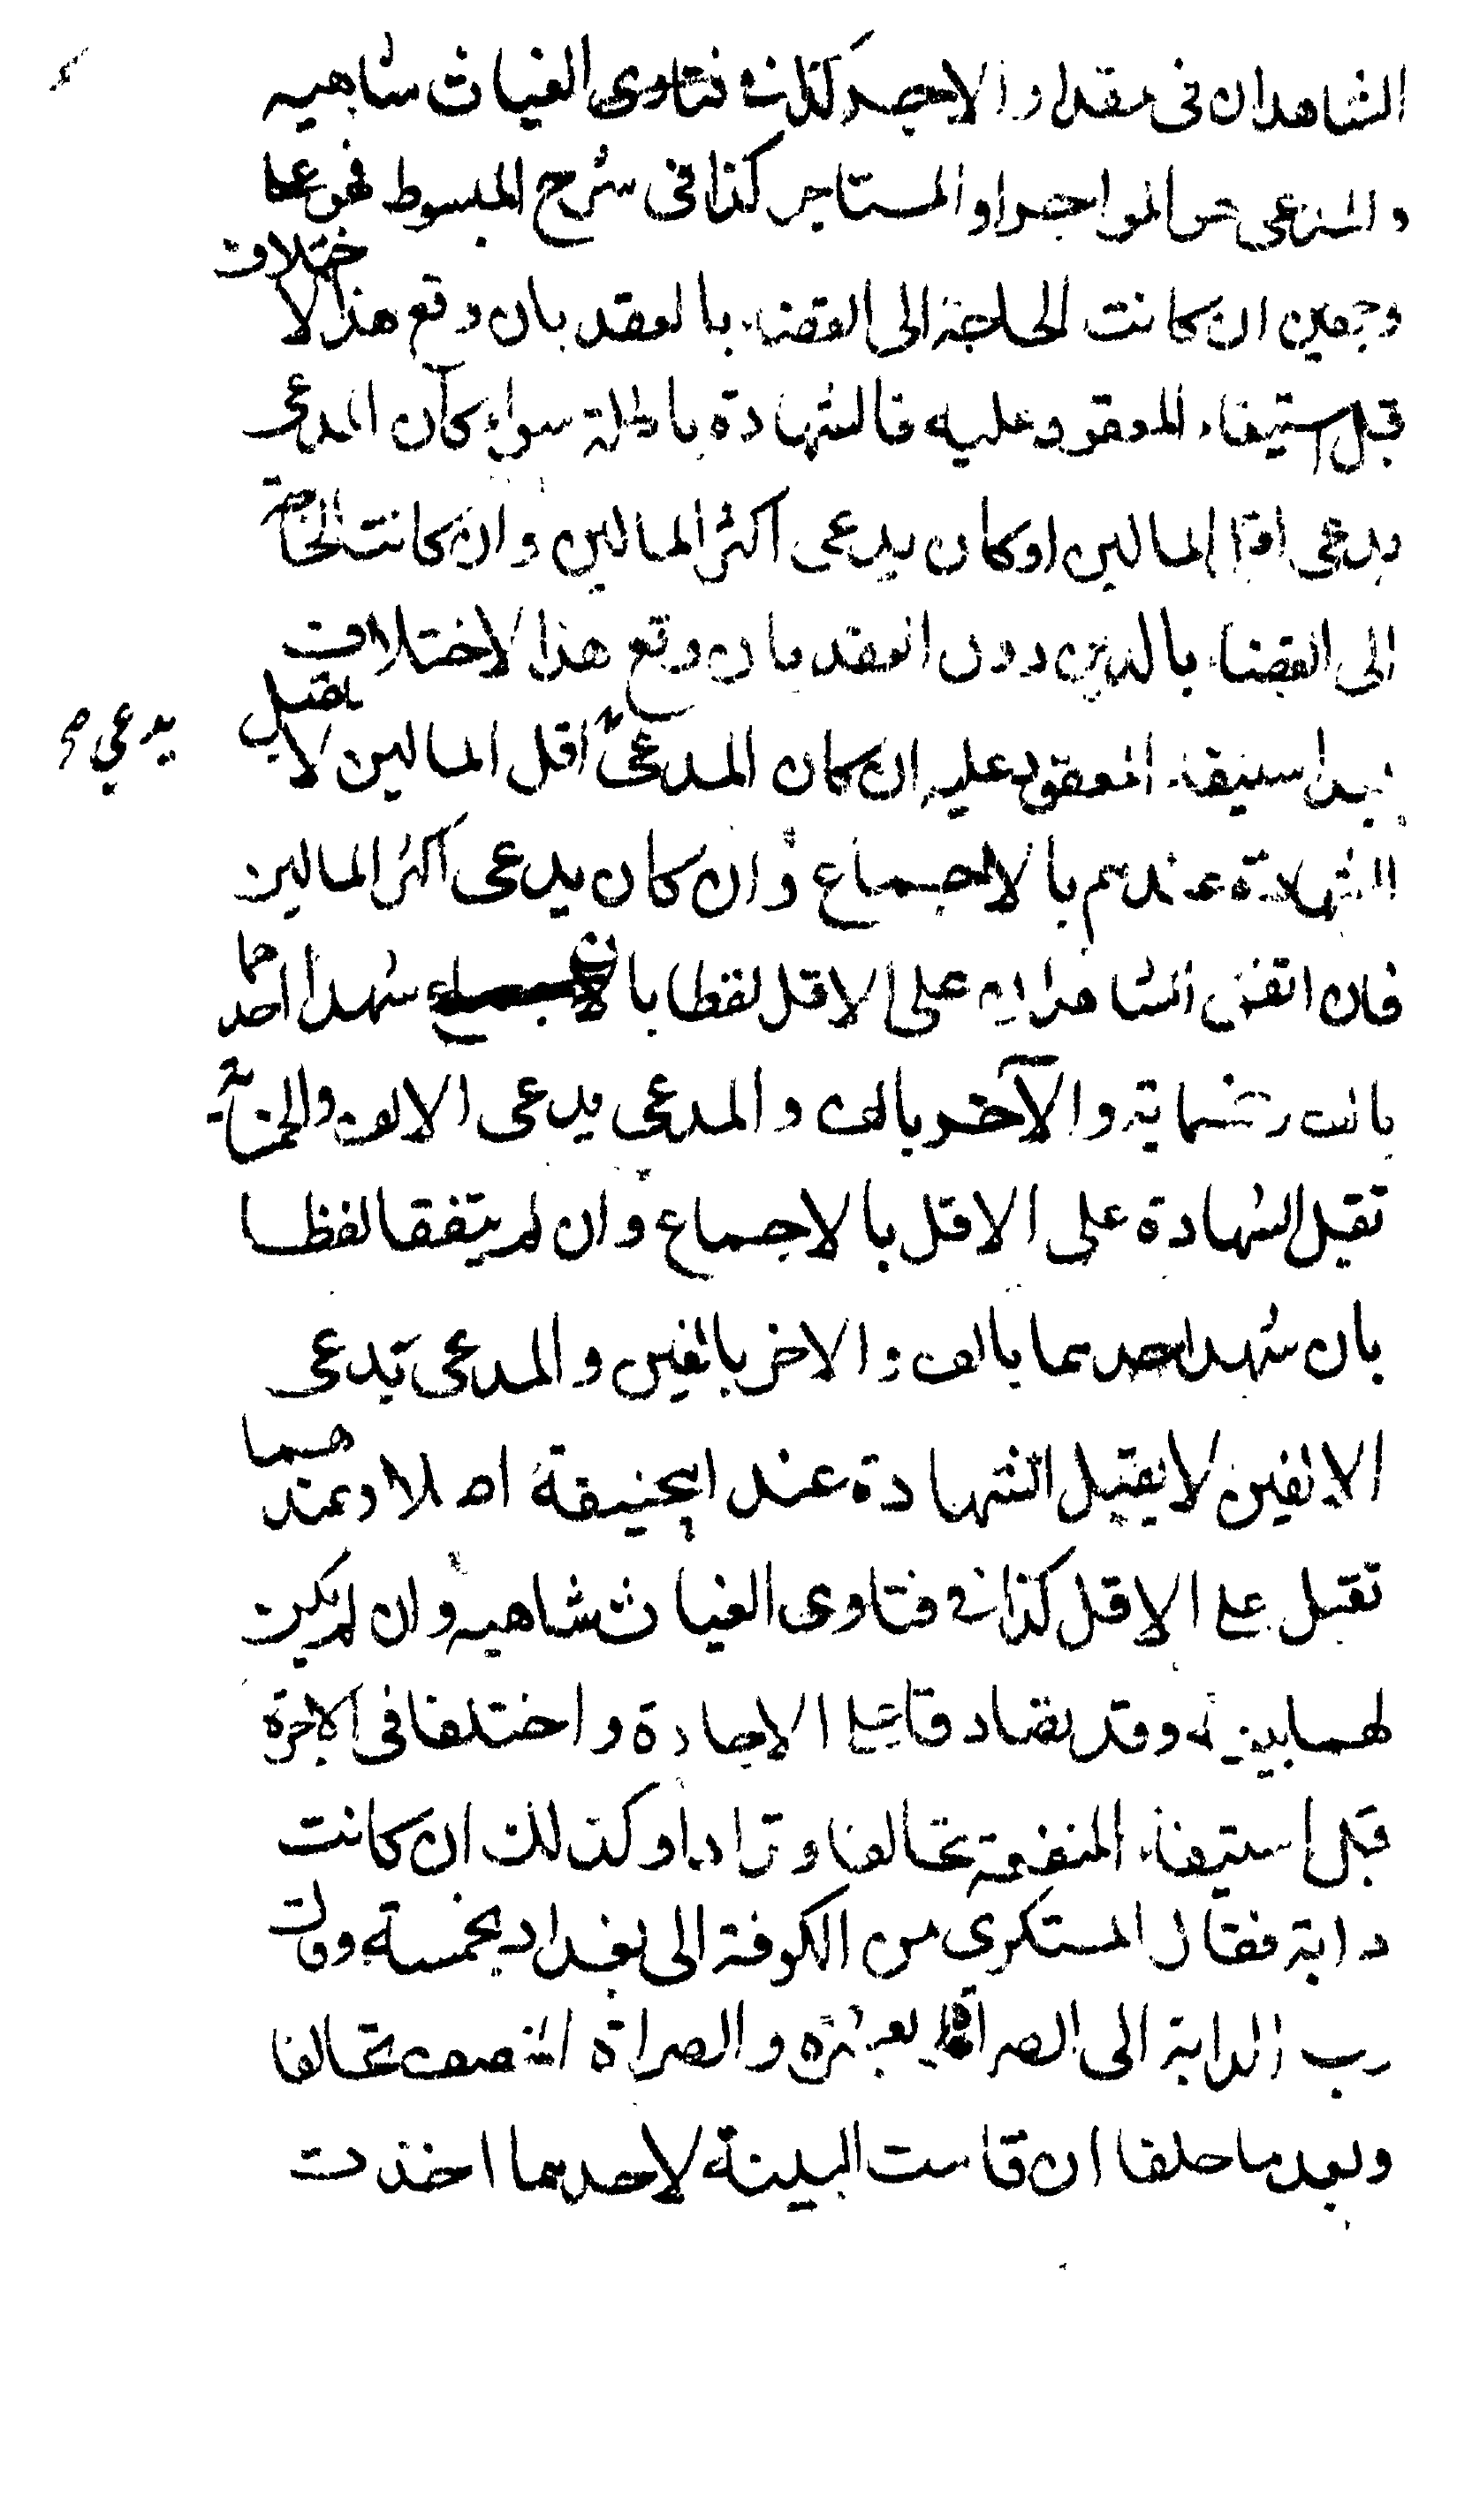 الشاهدان فى مقدار الاجر كذا فى فتاوى الغياث شاهيه
والمدعى هو المواجر او المستاجر كذا فى شرح المبسوط فهو على
وجهين ان كانت الحاجة الى القضاء بالعقد بان وقع هذا الاختلاف
قبل استيفاء المعقود عليه فالشهادة باطلة سواء كان المدعى
يدعى اقل المالين او كان يدعى اكثر المالين وان كانت الحاجة
الى القضاء بالدين دون العقد بان وقع هذا الاختلاف
بعد استيفاء المعقود عليه ان كان المدعى اقل المالين لا يقبل
يدعي صح
الشهادة عندهم بالاجماع وان كان يدعى اكثر المالين
فان اتفق الشاهدان على الاقل لفظا بان شهد احدهما
بالف وخمسماية والآخر بالف والمدعى يدعى الالف والخمسماية
تقبل الشهادة على الاقل بالاجماع وان لم يتفقا لفظا
بان شهد احدهما بالف والاخر بالفين والمدعى يدعى
الالفين لا يقبل الشهادة عند ابيحنيفة اصلا وعندهما
تقبل على الاقل كذا فى فتاوى الغياث شاهيه وان لم يكن
لهما بينة وقد تصادقا على الاجارة واختلفا فى الاجرة
قبل استيفاء المنفعة تحالفا وترادا وكذلك ان كانت
دابة فقال المستكرى من الكوفة الى بغداد بخمسة وقال
رب الدابة الى الصراة بعشرة والصراة النصف تحالفا
وبعد ما حلفا ان قامت البينة لاحدهما اخذت